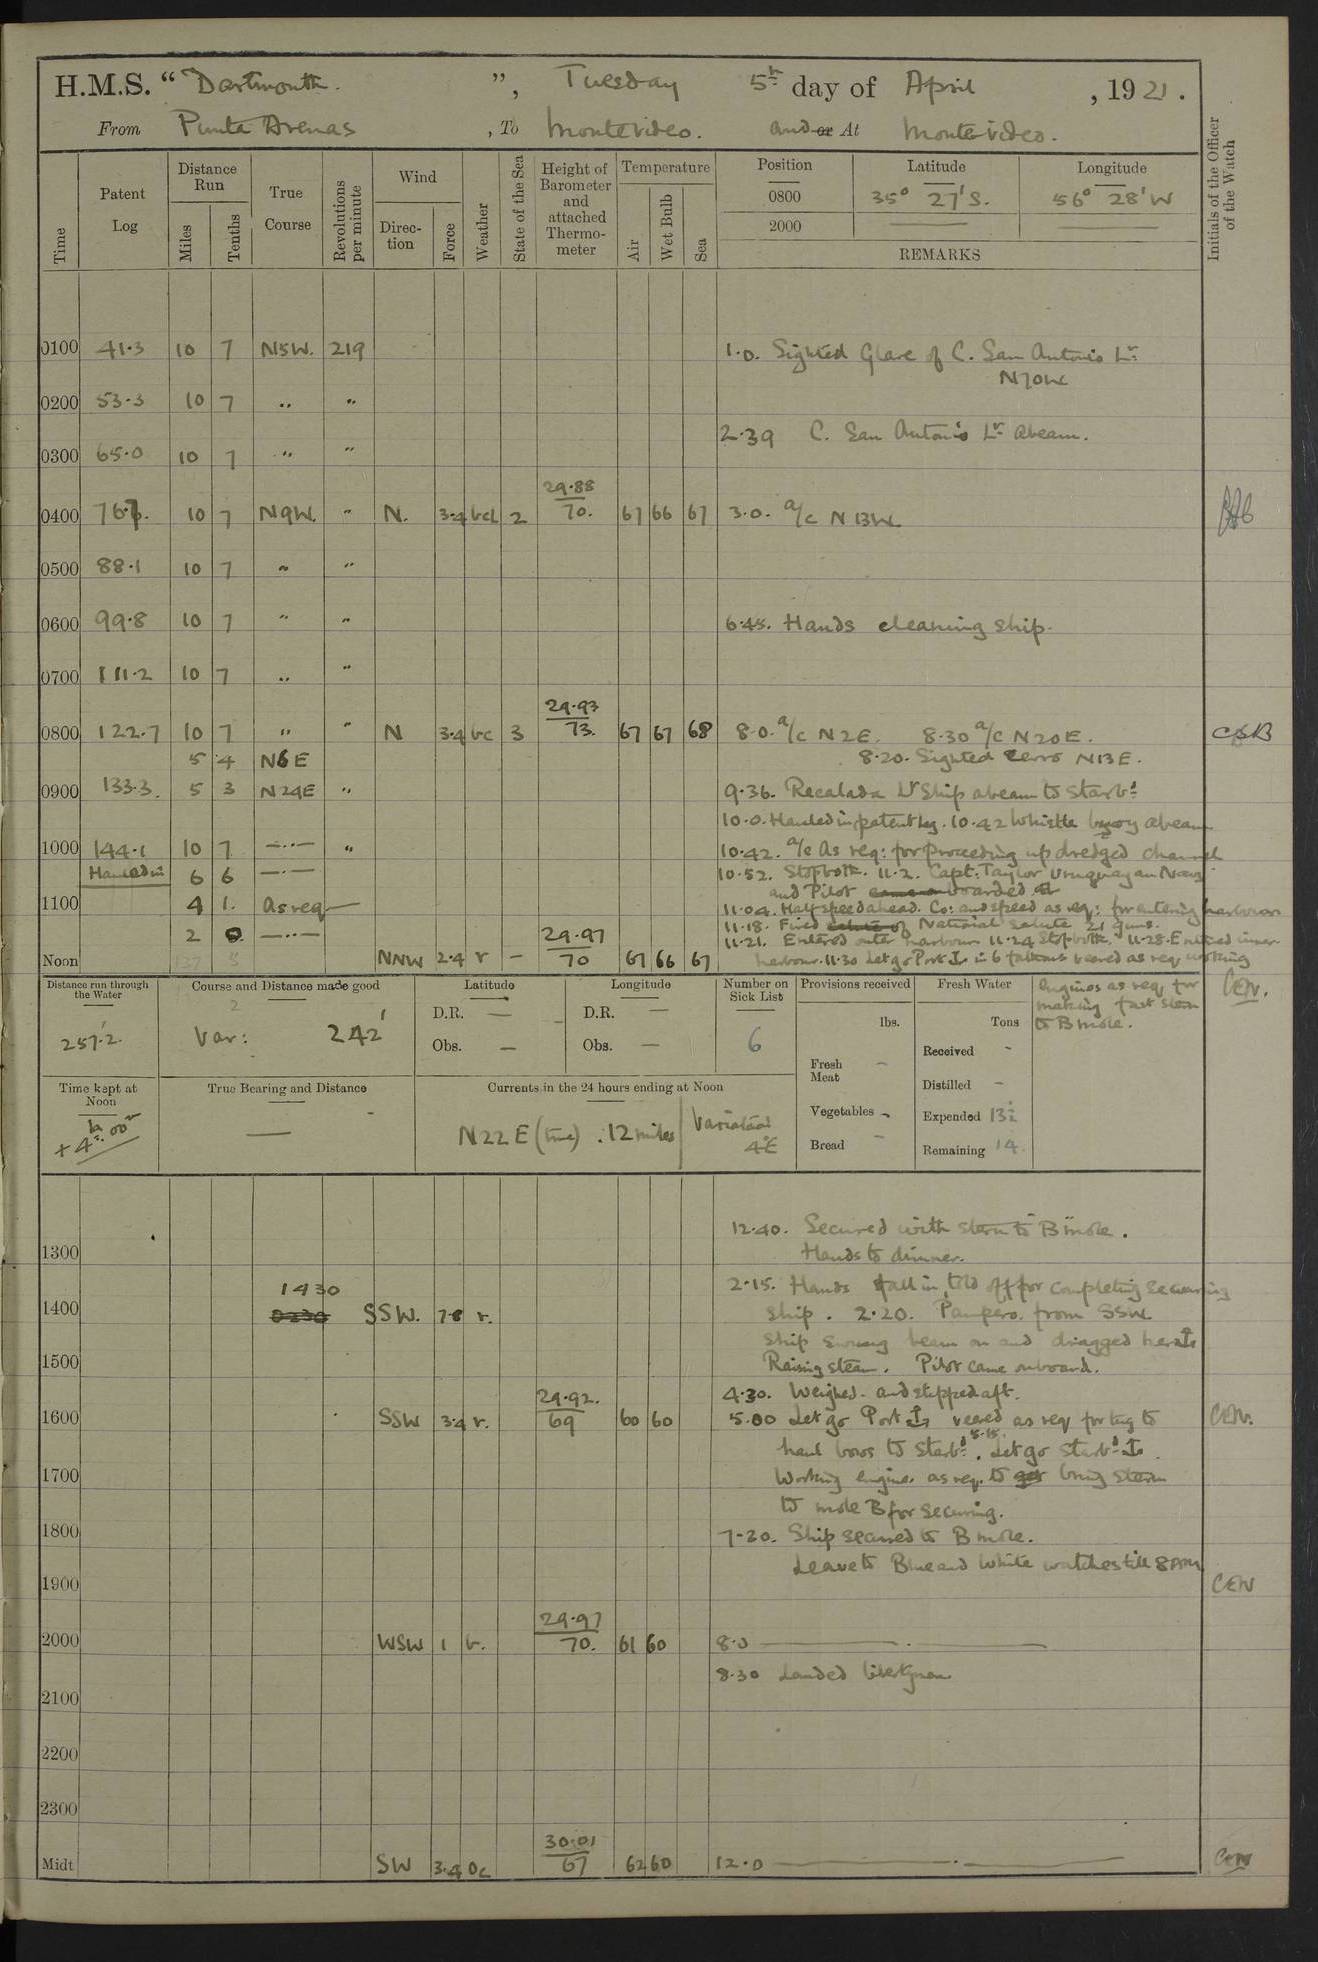 H.M.S. “ Dartmouth. ”, Tuesday 5th day of April , 1921.
From Punta Arenas , To Montevideo. and or At Montevideo.
Initials of the Officer of the Watch
Time
Patent Log
Distance Run
Miles
Tenths
True Course
Revolutions per minute
Wind
Direction
Force
Weather
State of the Sea
Height of Barometer and attached Thermometer
Temperature
Air
Wet Bulb
Sea
Position Latitude Longitude
0800 35° 27' S. 56° 28' W
2000 — —
REMARKS
0100 41.3 10 7 N5W. 219 1.0. Sighted Glare of C. San Antonio Lt:
N70W
0200 53.3 10 7 " "
2.39 C. San Antonio Lt abeam.
0300 65.0 10 7 " "
29.88
0400 76.6. 10 7 N9W. " N. 3.4 bcl 2 70. 67 66 67 3.0. a/c N13W
0500 88.1 10 7 " "
0600 99.8 10 7 " " 6.45. Hands cleaning ship.
0700 111.2 10 7 " "
29.93
0800 122.7 10 7 " " N 3.4 bc 3 73. 67 67 68 8.0. a/c N2E. 8.30 a/c N20E. CSB
5 4 N6E 8.20. Sighted Cerro N13E.
0900 133.3. 5 3 N24E " 9.36. Recalada Lt Ship abeam to Starbd
10.0. Hauled in patent log. 10.42 Whistle buoy abeam
1000 144.1 10 7 —..— " 10.42. a/c As req: for proceeding up dredged channel
Hauled in 6 6 —..— 10.52. Stop both. 11.2. Capt: Taylor Uruguayan Navy
and Pilot came on boarded
1100 4 1. As req— 11.04. Half speed ahead. Co: and speed as req: for entering harbour
11.18. Fired salute of National Salute 21 guns.
2 0. —..— 29.97 11.21. Entered outer harbour 11.24 Stop both. 11.28. Entered inner
Noon 137 5 NNW 2.4 r — 70 67 66 67 harbour. 11.30 Let go Port ⚓ in 6 fathoms veered as req working
engines as req for
making fast stern
to B mole.
CEW.
Distance run through the Water
257.2'
Course and Distance made good
2
Var: 242'
Latitude
D.R. —
Obs. —
Longitude
D.R. —
Obs. —
Number on Sick List
6
Provisions received
lbs.
Fresh Meat –
Vegetables –
Bread –
Fresh Water
Tons
Received –
Distilled –
Expended 13½
Remaining 14.
Time kept at Noon
+4h. 00m
True Bearing and Distance
—
Currents in the 24 hours ending at Noon
N22E (true) . 12 miles Variation 4°E
12.40. Secured with stern to B mole.
1300 Hands to dinner.
1430 2.15. Hands fall in, told off for completing securing
1400 0230 SSW. 7-8 r. ship. 2.20. Pampero from SSW
Ship swung beam on and dragged her ⚓
1500 Raising steam. Pilot came onboard.
29.92. 4.30. Weighed. and slipped aft.
1600 SSW 3.4 r. 69 60 60 5.00 Let go Port ⚓ veered as req for tug to CEW.
haul bows to Starbd. 5.15. Let go Starbd ⚓.
1700 Working engines as req. to get bring stern
to mole B for securing.
1800 7-20. Ship secured to B mole.
Leave to Blue and White watches till 8 AM
1900 CEW
29.97
2000 WSW 1 b. 70. 61 60 8.0 —
8.30 Landed libertymen
2100
2200
2300
30.01
Midt SW 3.4 oc 67 62 60 12.0 — CEW